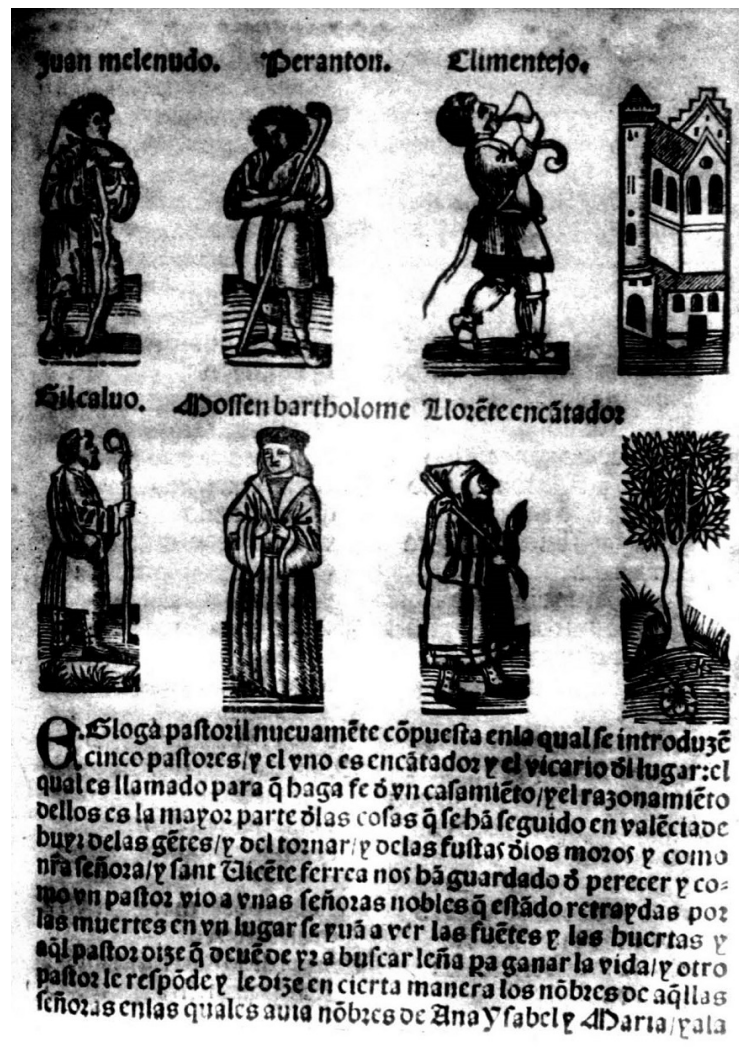 Juan melenudo. Peranton. Climentejo.
Gilcaluo. Mossen bartholome Llorẽte encãtador
EGloga pastoril nueuamẽte cõpuesta enla qual se introduzẽ
cinco pastores/y el vno es encãtador y el vicario đl lugar: el
qual es llamado para q̃ haga fe đ vn casamiẽto/y el razonamiẽto
dellos es la mayor parte đlas cosas q̃ se hã seguido en valẽcia de
huyr delas gẽtes/y del tornar/y delas fustas đlos moros y como
nr̃a señora/y sant Uicẽte ferrea nos hã guardado đ perecer y co-
mo vn pastor vio a vnas señoras nobles q̃ estãdo retraydas por
las muertes en vn lugar se yuã a ver las fuẽtes y las huertas y
aq̃l pastor dize q̃ deuẽ de yr a buscar leña pa ganar la vida/y otro
pastor le respõde y le dize en cierta manera los nõbres de aq̃llas
señoras enlas quales auia nõbres de Ana Ysabel y Maria/y ala